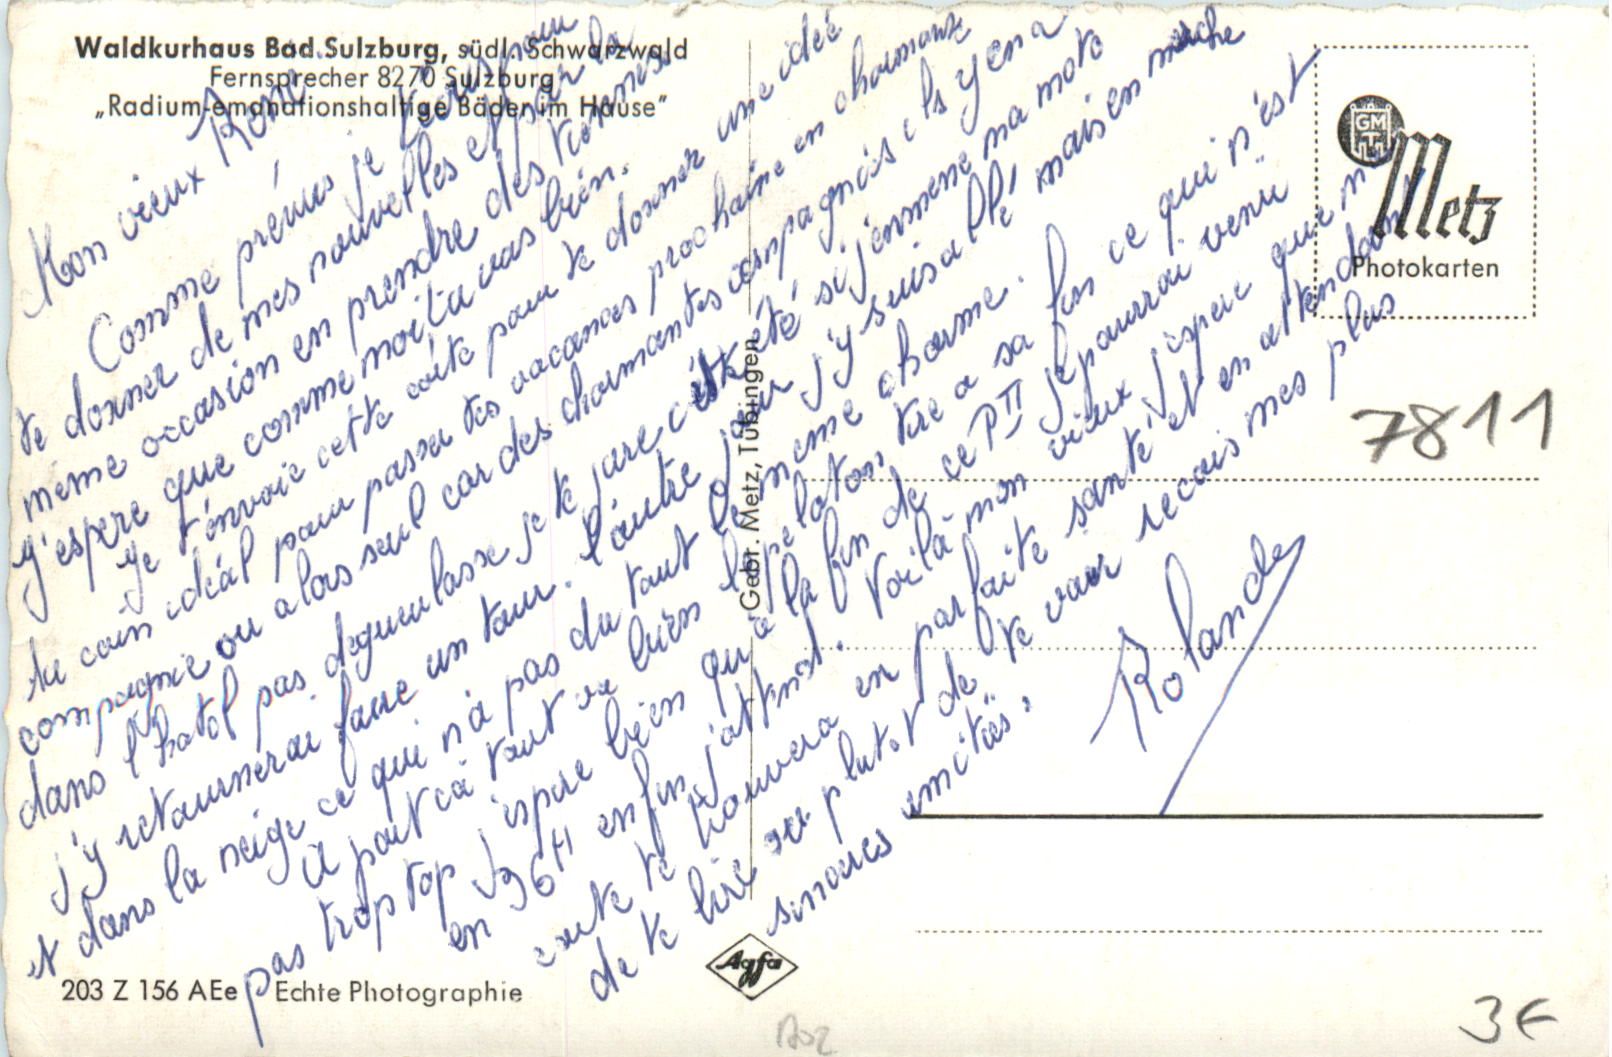 Waldkurhaus Bad Sulzburg, südl. Schwarzwald
Fernsprecher 8270 Sulzburg
„Radium-emanationshaltige Bäder im Hause"
Mon vieux René.
Comme prévus je t'écris pour
te donner de mes nouvelles et par la
même occasion en prendre des tiennes.
j'espère que comme moi tu vas bien.
je t'envoie cette carte pour te donner une idée
du coin idéal pour passer tes vacances prochaine en charmante
compagnie ou alors seul car des charmantes compagnies ils y en a
dans l'hotol pas dégueulasse je te jure cet été si j'emmene ma moto
j'y retournerai faire un tour. l'autre jour j'y suis allé mais en marche
et dans la neige ce qui n'a pas du tout le meme charme.
A part ca tout va bien le peloton tire a sa fin ce qui n'est
pas trop top j'espère bien qu'a la fin de ce PII je pourrai venir
en 36H enfin j'attend. Voilà mon vieux j'espere que m
carte te trouvera en parfaite santé et en attendant
de te lire ou plutot de te voir recois mes plus
sincères amitiés.
Rolande
GM
Metz
Photokarten
7811
Gebr. Metz, Tübingen
203 Z 156 AEe
Echte Photographie
Agfa
3€